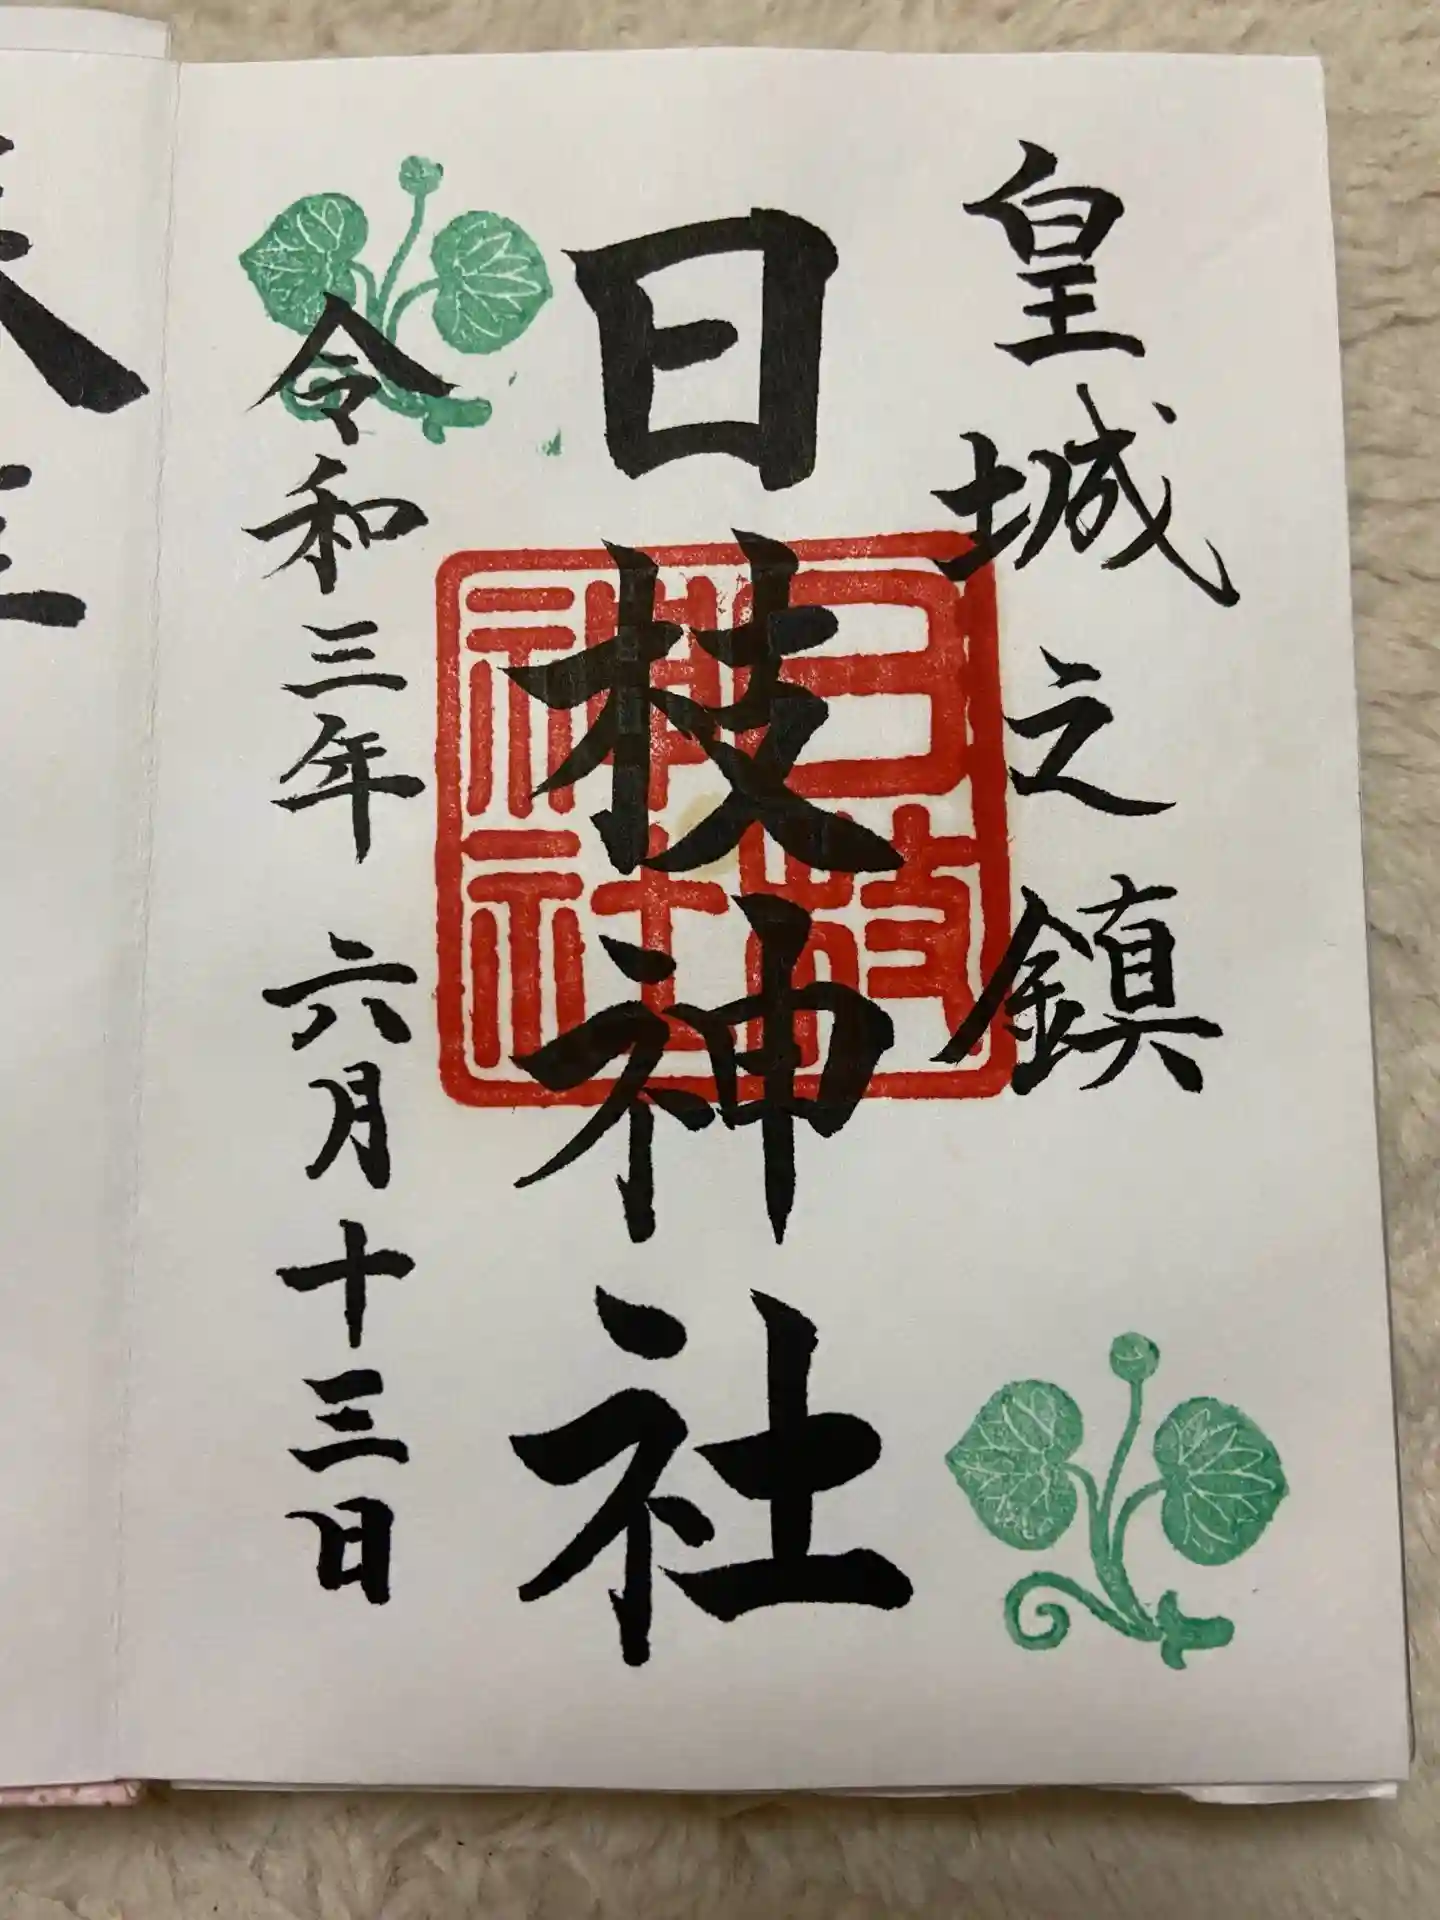 皇城之鎮
日枝神社
日枝神社
令和三年 六月十三日